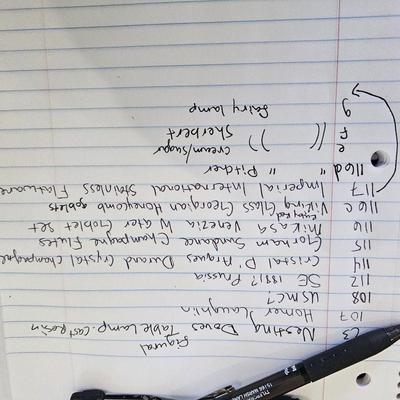 Figural
C3 Nesting Doves Table Lamp. Cast Resin
107 Homer Laughlin
108 USMC?
112 SE 1881? Prussia
114 Cristal D'Arques Durand Crystal Champagne
115 Gorham Sundance Champagne Flutes
116 Mikasa Venezia Water Goblet Set
116 c Viking Glass Georgian Honeycomb goblets
117 Imperial International Stainless Flatware
116 d " " Pitcher
e (( )) cream/sugar
f Sherbert
g fairy lamp